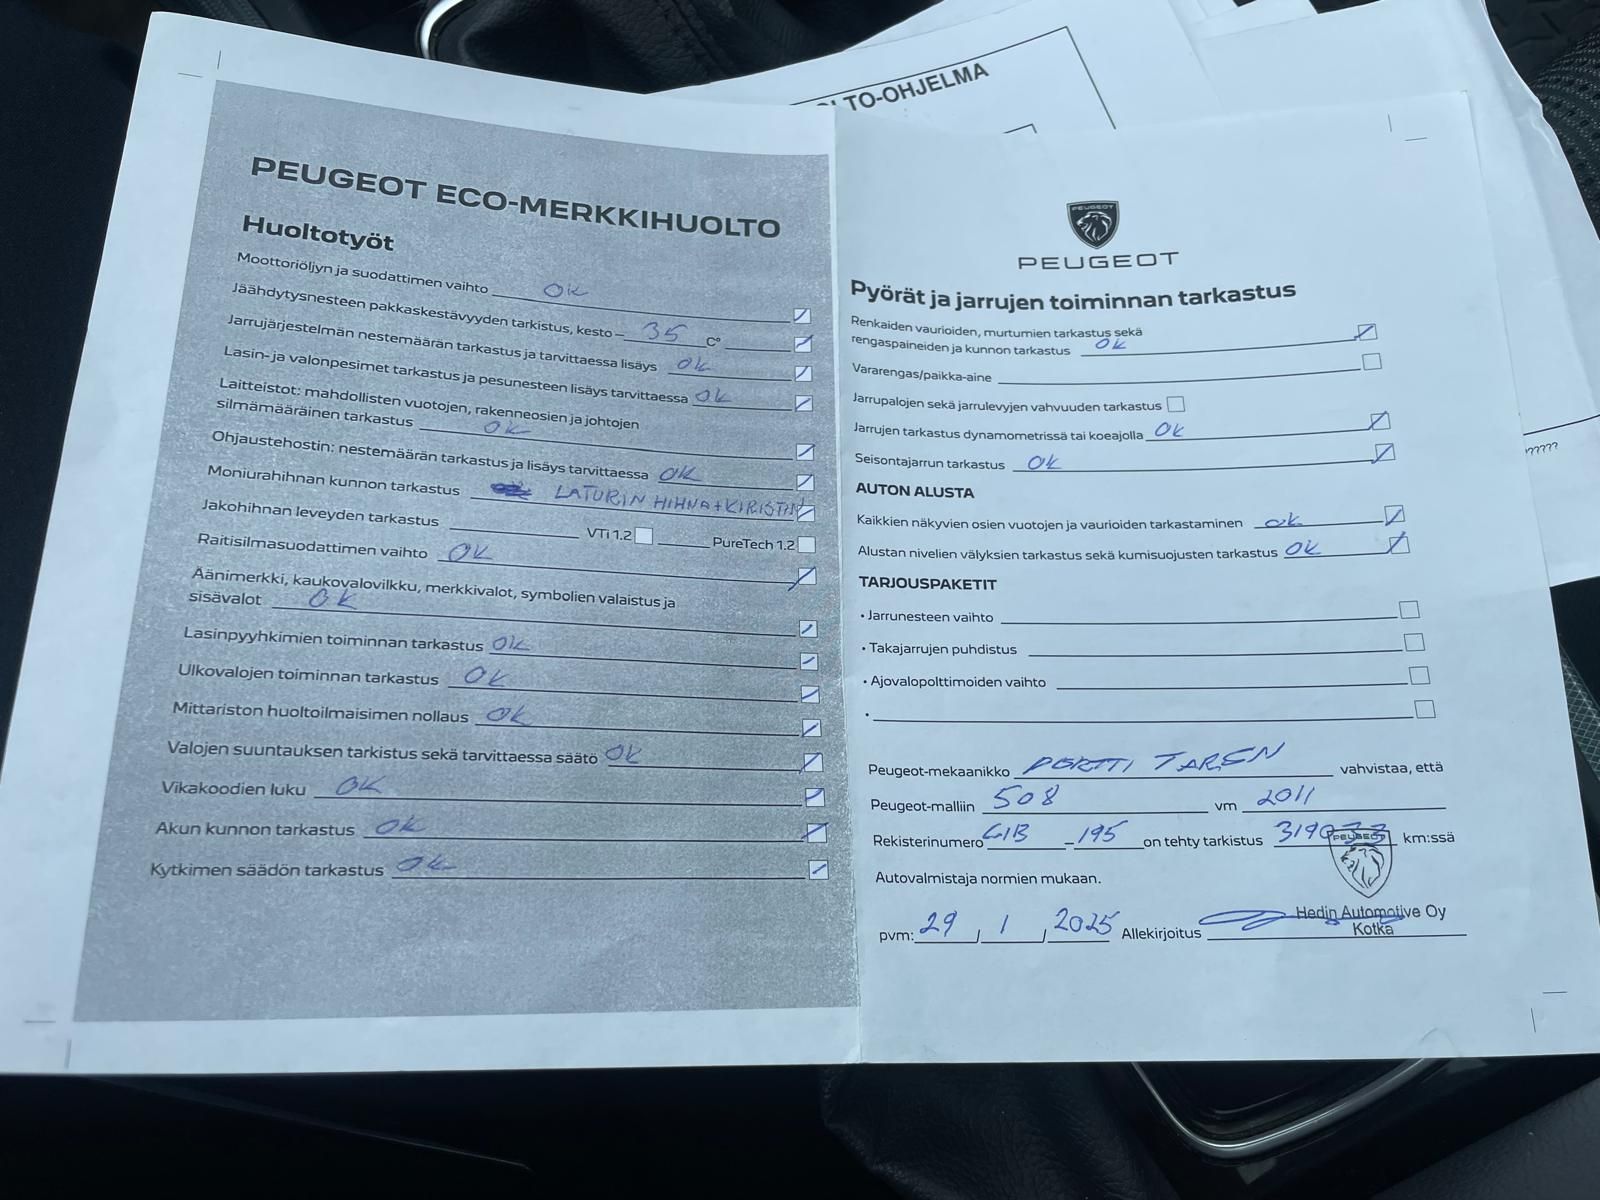 LTO-OHJELMA
PEUGEOT ECO-MERKKIHUOLTO
Huoltotyöt
Moottoriöljyn ja suodattimen vaihto OK
Jäähdytysnesteen pakkaskestävyyden tarkistus, kesto – 35 C°
Jarrujärjestelmän nestemäärän tarkastus ja tarvittaessa lisäys OK
Lasin- ja valonpesimet tarkastus ja pesunesteen lisäys tarvittaessa OK
Laitteistot: mahdollisten vuotojen, rakenneosien ja johtojen
silmämääräinen tarkastus OK
Ohjaustehostin: nestemäärän tarkastus ja lisäys tarvittaessa OK
Moniurahihnan kunnon tarkastus LATURIN HIHNA+KIRISTIN
Jakohihnan leveyden tarkastus VTi 1.2 PureTech 1.2
Raitisilmasuodattimen vaihto OK
Äänimerkki, kaukovalovilkku, merkkivalot, symbolien valaistus ja
sisävalot OK
Lasinpyyhkimien toiminnan tarkastus OK
Ulkovalojen toiminnan tarkastus OK
Mittariston huoltoilmaisimen nollaus OK
Valojen suuntauksen tarkistus sekä tarvittaessa säätö OK
Vikakoodien luku OK
Akun kunnon tarkastus OK
Kytkimen säädön tarkastus OK
PEUGEOT
PEUGEOT
Pyörät ja jarrujen toiminnan tarkastus
Renkaiden vaurioiden, murtumien tarkastus sekä
rengaspaineiden ja kunnon tarkastus OK
Vararengas/paikka-aine
Jarrupalojen sekä jarrulevyjen vahvuuden tarkastus
Jarrujen tarkastus dynamometrissä tai koeajolla OK
Seisontajarrun tarkastus OK
AUTON ALUSTA
Kaikkien näkyvien osien vuotojen ja vaurioiden tarkastaminen OK
Alustan nivelien välyksien tarkastus sekä kumisuojusten tarkastus OK
TARJOUSPAKETIT
• Jarrunesteen vaihto
• Takajarrujen puhdistus
• Ajovalopolttimoiden vaihto
•
Peugeot-mekaanikko PERTTI vahvistaa, että
Peugeot-malliin 508 vm 2011
Rekisterinumero GIB – 195 on tehty tarkistus 319033 km:ssä
PEUGEOT
Autovalmistaja normien mukaan.
Hedin Automotive Oy
Kotka
pvm: 29 / 1 / 2025 Allekirjoitus
?????